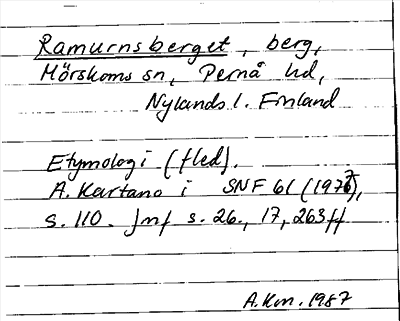 Ramurnsberget, berg,
Mörskoms sn, Pernå hd,
Nylands l. Finland
Etymologi (fled).
A. Kartano i SNF 61 (1976),
s. 110. Jmf s. 26., 17, 263 ff
A.Km. 1987